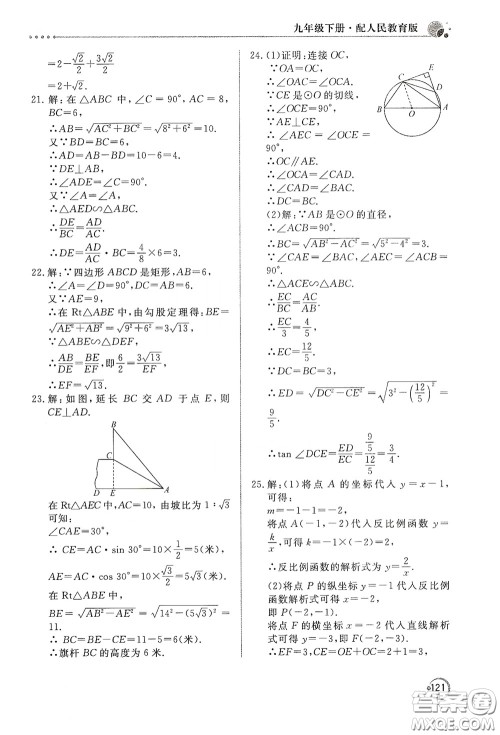 九年级下册·配人民教育版
=2-√2/2+3√2/2
=2+√2.
21. 解:在△ABC 中,∠C=90°,AC=8,
BC=6,
∴AB=√(AC²+BC²)=√(8²+6²)=10.
又∵BD=BC=6,
∴AD=AB-BD=10-6=4.
∵DE⊥AB,
∴∠ADE=∠C=90°.
又∵∠A=∠A,
∴△AED∽△ABC.
∴DE/BC=AD/AC.
∴DE=AD/AC·BC=4/8×6=3.
22. 解:∵四边形 ABCD 是矩形,AB=6,
∴∠A=∠D=90°,DC=AB=6.
又∵AE=9,
∴在 Rt△ABE 中,由勾股定理得:BE=
√(AE²+AB²)=√(9²+6²)=3√13.
∵△ABE∽△DEF,
∴AB/DE=BE/EF,即6/2=3√13/EF,
∴EF=√13.
23. 解:如图,延长 BC 交 AD 于点 E,则
CE⊥AD.
B
C
D
E
A
在 Rt△AEC 中,AC=10,由坡比为 1:√3
可知:
∠CAE=30°,
∴ CE=AC·sin 30°=10×1/2=5(米),
AE=AC·cos 30°=10×√3/2=5√3(米).
在 Rt△ABE 中,
BE=√(AB²-AE²)=√(14²-(5√3)²)=
11.
∴BC=BE-CE=11-5=6(米).
∴旗杆 BC 的高度为 6 米.
24. (1)证明:连接 OC,
∵OA=OC,
∴∠OAC=∠OCA.
∵CE 是⊙O 的切线,
∴∠OCE=90°.
∵AE⊥CE,
∴∠AEC=∠OCE=
90°.
∴OC∥AE.
∴∠OCA=∠CAD.
∴∠CAD=∠BAC.
E
C
D
B
O
A
(2)解:∵AB 是⊙O 的直径,
∴∠ACB=90°.
∴BC=√(AB²-AC²)=√(5²-4²)=3.
∵∠CAE=∠BAC,∠AEC=∠ACB=
90°,
∴△ACE∽△ABC.
∴EC/BC=AC/AB.
∴EC/3=4/5.
∴EC=12/5.
∵DC=BC=3,
∴ED=√(DC²-CE²)=√(3²-(12/5)²)=
9/5.
∴tan ∠DCE=ED/EC=(9/5)/(12/5)=3/4.
25. 解:(1)将点 A 的坐标代入 y=x-1,
可得:
m=-1-1=-2,
将点 A(-1,-2)代入反比例函数 y=
k/x,可得 k=-1×(-2)=2,
∴反比例函数的解析式为 y=2/x.
(2)将点 P 的纵坐标 y=-1,代入反比
例函数解析式可得 x=-2,
即 P(-2,-1).
将点 F 的横坐标 x=-2 代入直线解析
式可得 y=-3,即 F(-2,-3).
∴EF=3,CE=OE+OC=2+1=3,
121